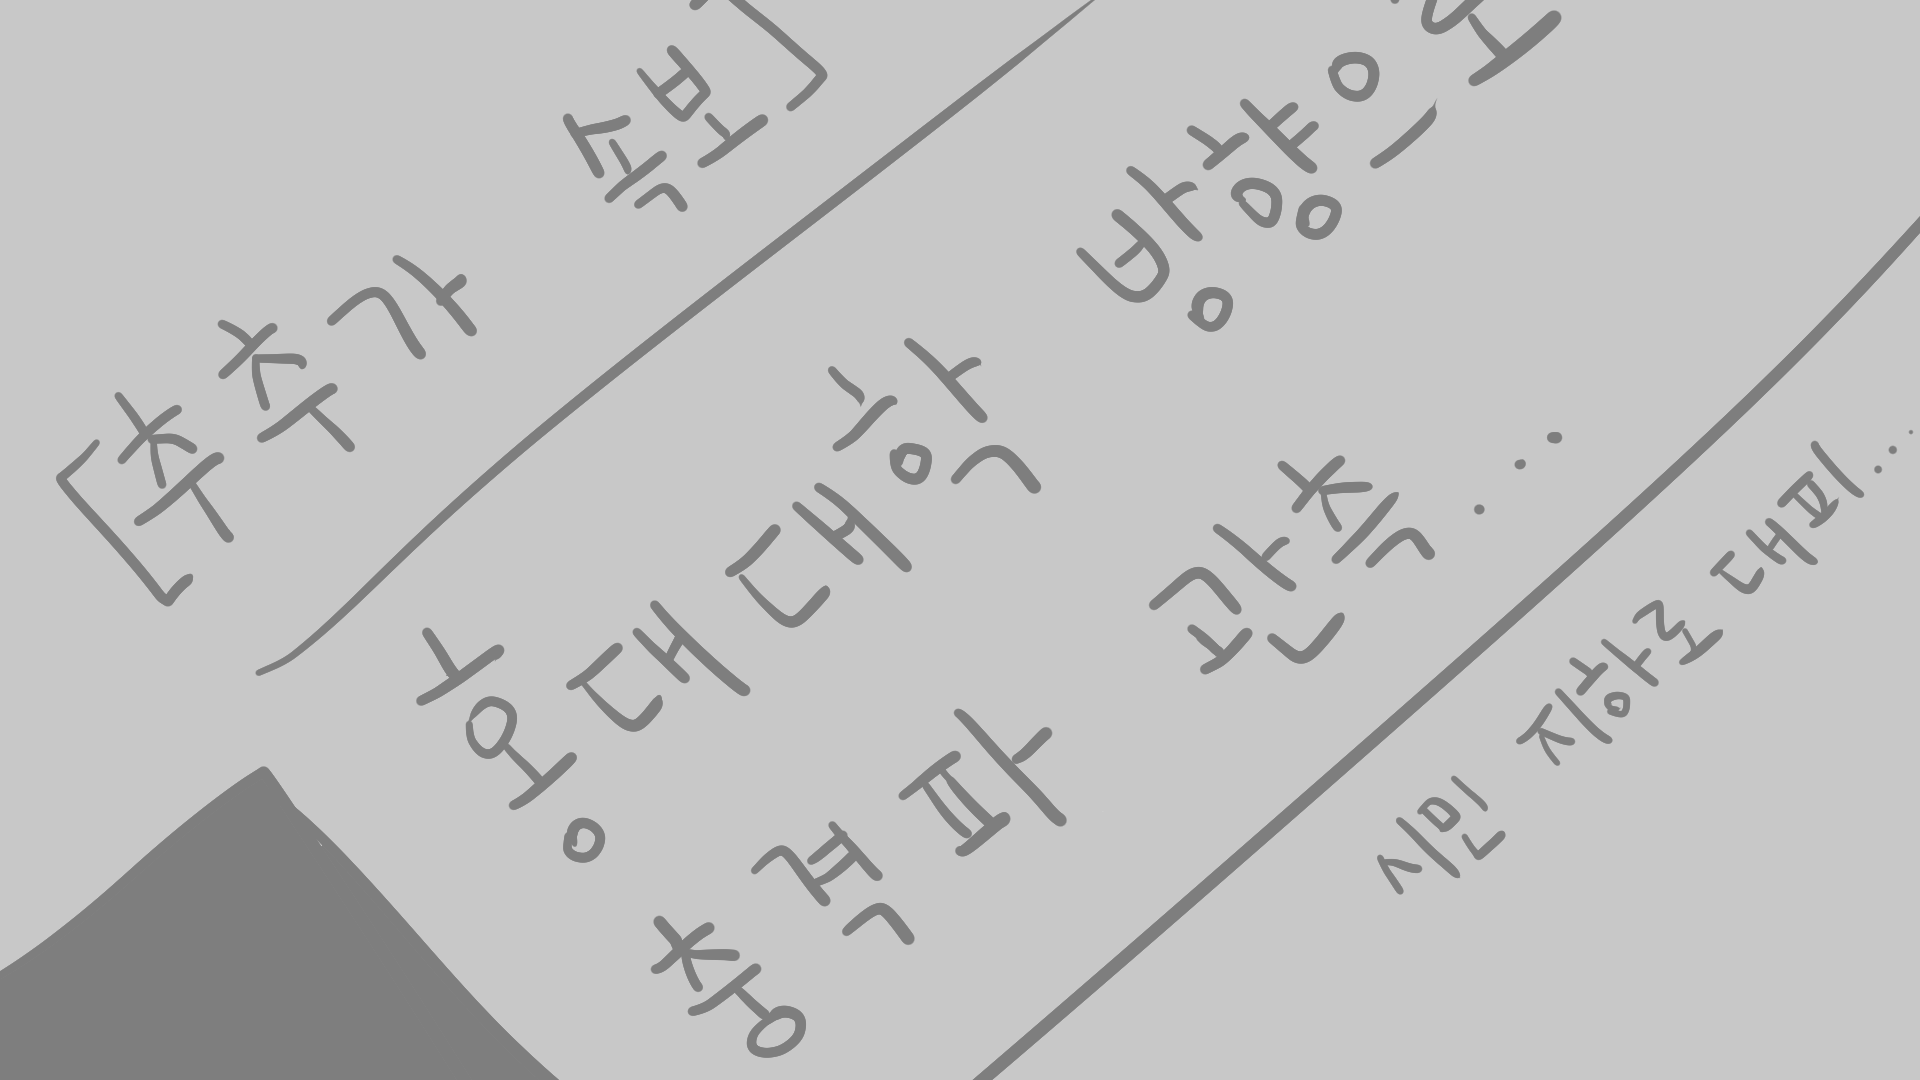 [추추가 속보]
홍대대학 방향으로
충격파 관측...
시민 지하로 대피...